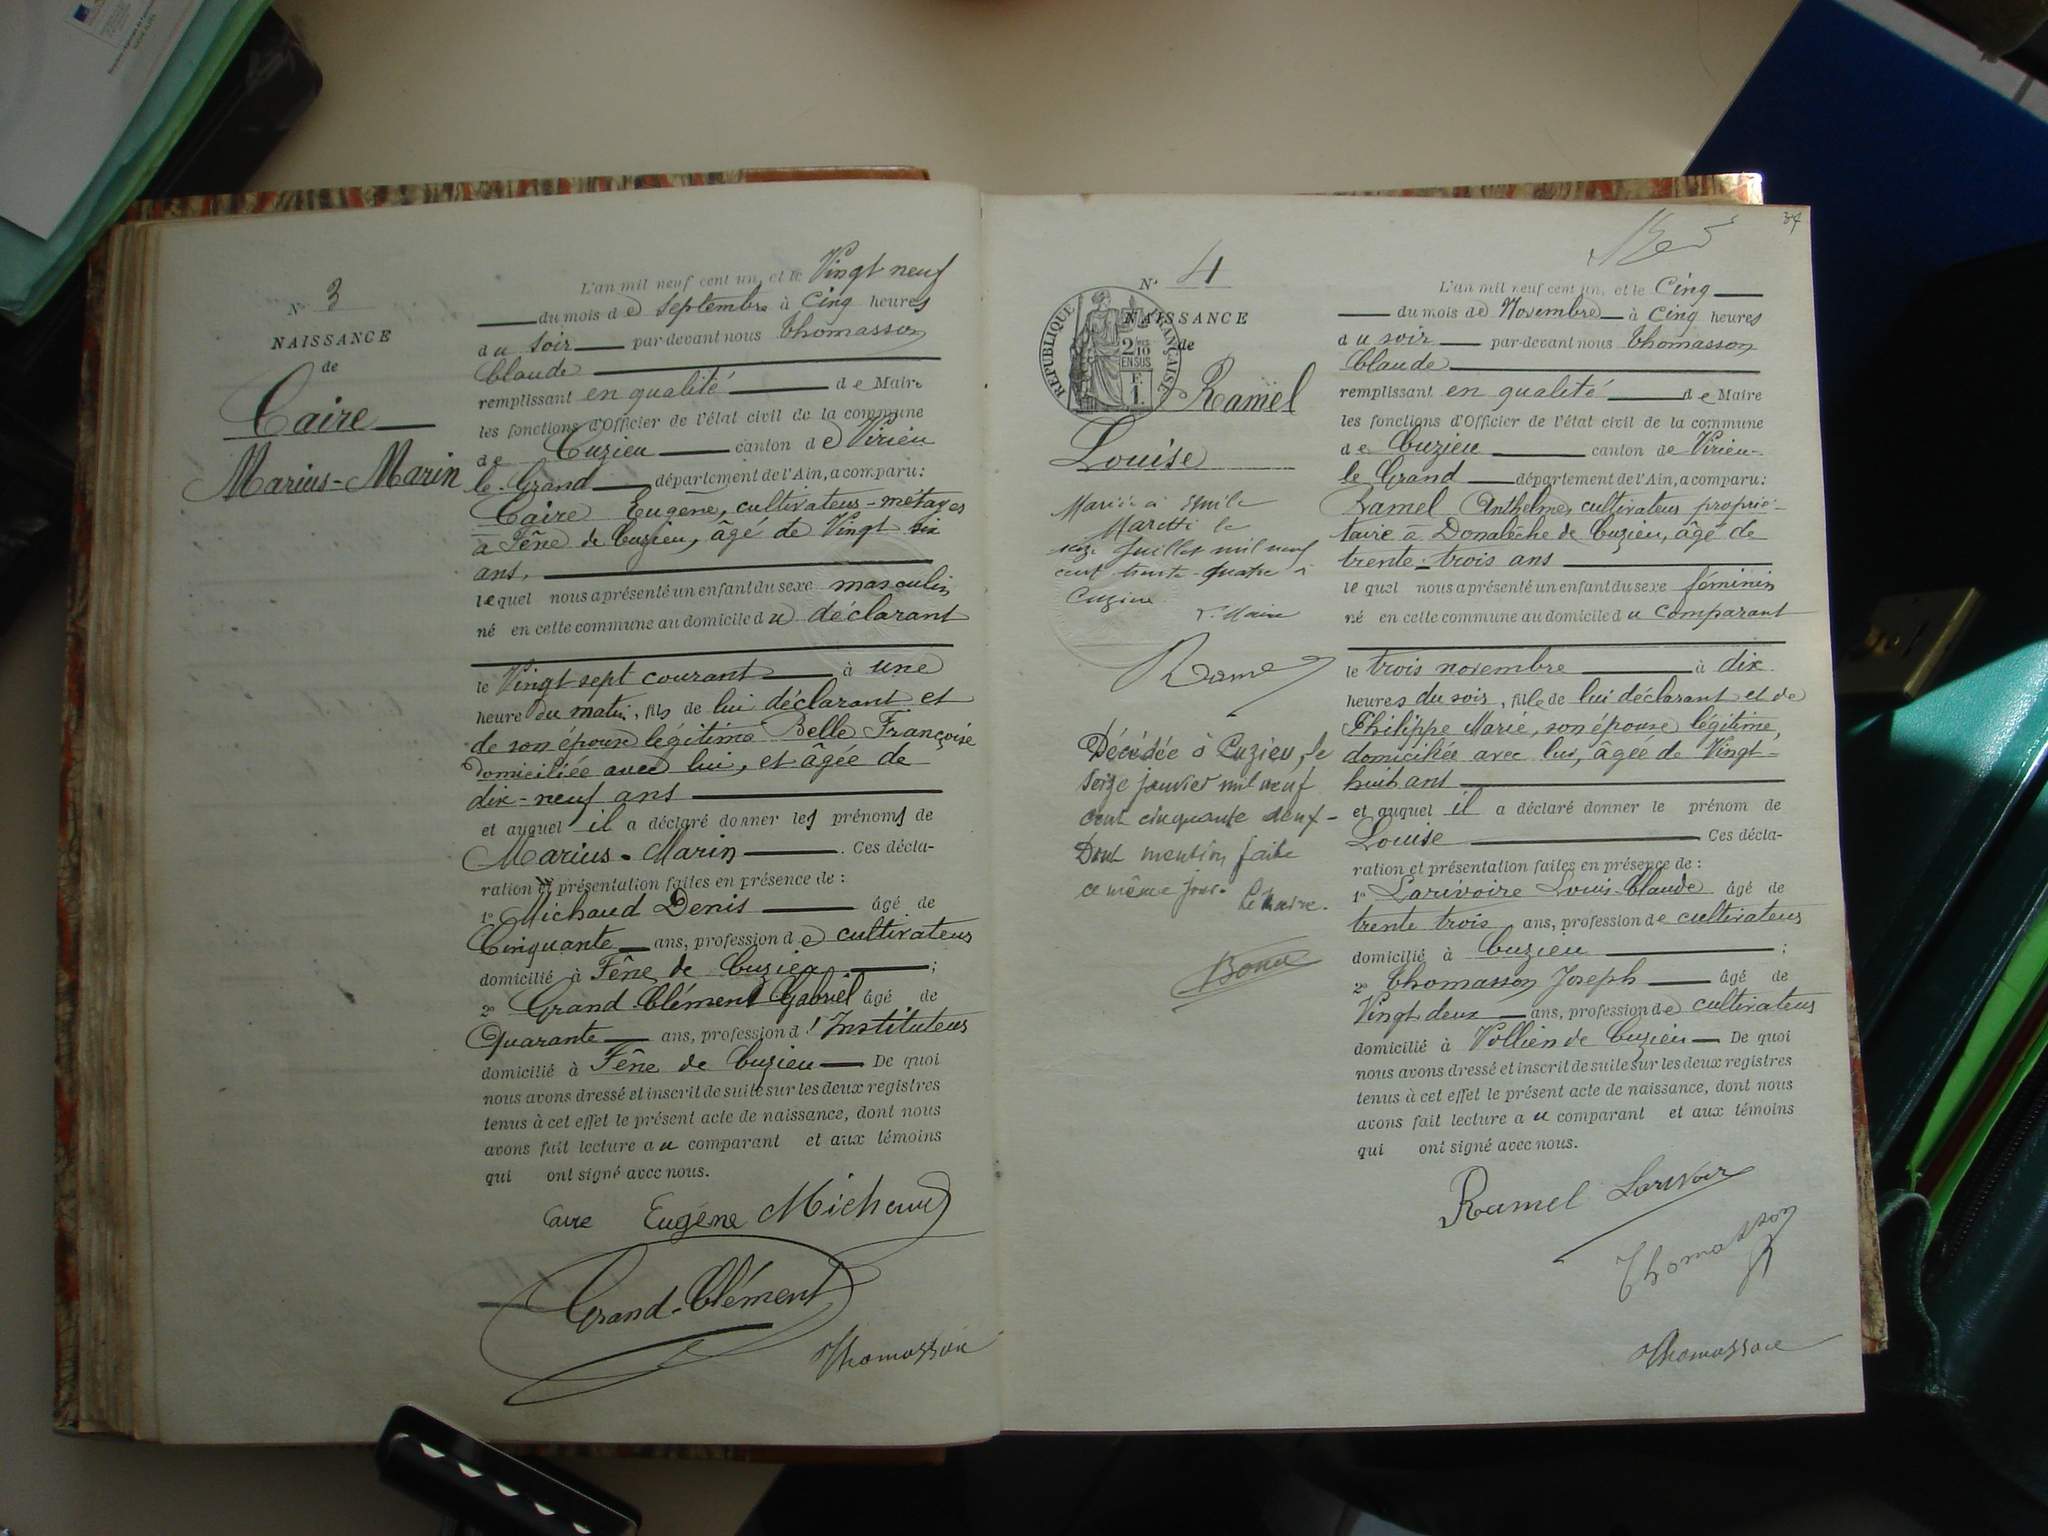 N° 3
NAISSANCE
de
Caire
Marius-Marin
L'an mil neuf cent un, et le Vingt neuf
du mois de Septembre à Cinq heures
du soir par-devant nous Thomasson
Claude
remplissant en qualité de Maire
les fonctions d'Officier de l'état civil de la commune
de Cuzieu canton de Virieu
le Grand département de l'Ain, a comparu:
Caire Eugène, cultivateur-métayer
à Fêne de Cuzieu, âgé de Vingt six
ans,
lequel nous a présenté un enfant du sexe masculin
né en cette commune au domicile du déclarant
le Vingt sept courant à une
heure du matin, fils de lui déclarant et
de son épouse légitime Belle Françoise
domiciliée avec lui, et âgée de
dix-neuf ans
et auquel il a déclaré donner les prénoms de
Marius-Marin. Ces décla-
ration et présentation faites en présence de:
1° Michaud Denis âgé de
Cinquante ans, profession de cultivateur
domicilié à Fêne de Cuzieu;
2° Grand-Clément Gabriel âgé de
Quarante ans, profession d'Instituteur
domicilié à Fêne de Cuzieu De quoi
nous avons dressé et inscrit de suite sur les deux registres
tenus à cet effet le présent acte de naissance, dont nous
avons fait lecture au comparant et aux témoins
qui ont signé avec nous.
Caire Eugène Michaud
Grand-Clément
Thomasson
34
N° 4
NAISSANCE
de
RÉPUBLIQUE FRANÇAISE
2/10 EN SUS
F. 1.
Ramel
Louise
Mariée à Emile
Maretti le
seize Juillet mil neuf
cent trente-quatre à
Cuzieu
Le Maire
Ramel
Décédée à Cuzieu, le
seize janvier mil neuf
cent cinquante deux-
Dont mention faite
ce même jour.
Le Maire.
L'an mil neuf cent un, et le Cinq
du mois de Novembre à Cinq heures
du soir par-devant nous Thomasson
Claude
remplissant en qualité de Maire
les fonctions d'Officier de l'état civil de la commune
de Cuzieu canton de Virieu-
le Grand département de l'Ain, a comparu:
Ramel Anthelme, cultivateur proprié-
taire à Donalèche de Cuzieu, âgé de
trente-trois ans
lequel nous a présenté un enfant du sexe féminin
né en cette commune au domicile du comparant
le trois novembre à dix
heures du soir, fille de lui déclarant et de
Philippe Marie, son épouse légitime,
domiciliée avec lui, âgée de Vingt-
huit ans
et auquel il a déclaré donner le prénom de
Louise Ces décla-
ration et présentation faites en présence de:
1° Larivoire Louis-Claude âgé de
trente trois ans, profession de cultivateur
domicilié à Cuzieu;
2° Thomasson Joseph âgé de
Vingt deux ans, profession de cultivateur
domicilié à Vollien de Cuzieu De quoi
nous avons dressé et inscrit de suite sur les deux registres
tenus à cet effet le présent acte de naissance, dont nous
avons fait lecture au comparant et aux témoins
qui ont signé avec nous.
Ramel Larivoir
Thomasson
Thomasson